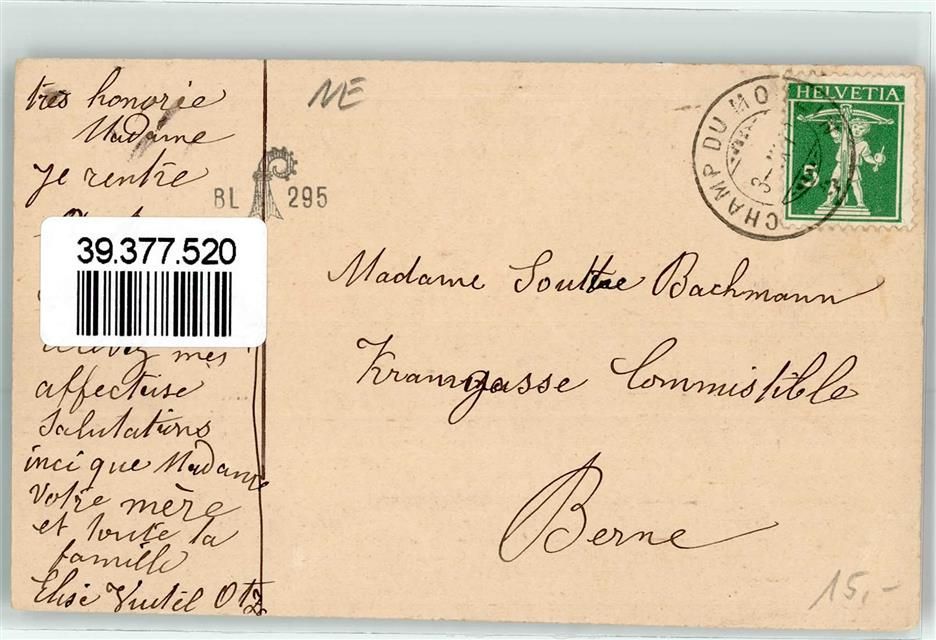 très honorie
Madame
Je rentre
mes
affectuise
Salutations
inci que Madame
Votre mère
et toute la
famille
Elise
NE
BL 295
39.377.520
CHAMP DU MO
HELVETIA
5
Madame Souttre Bachmann
Kramgasse Commistible
Berne
15,-